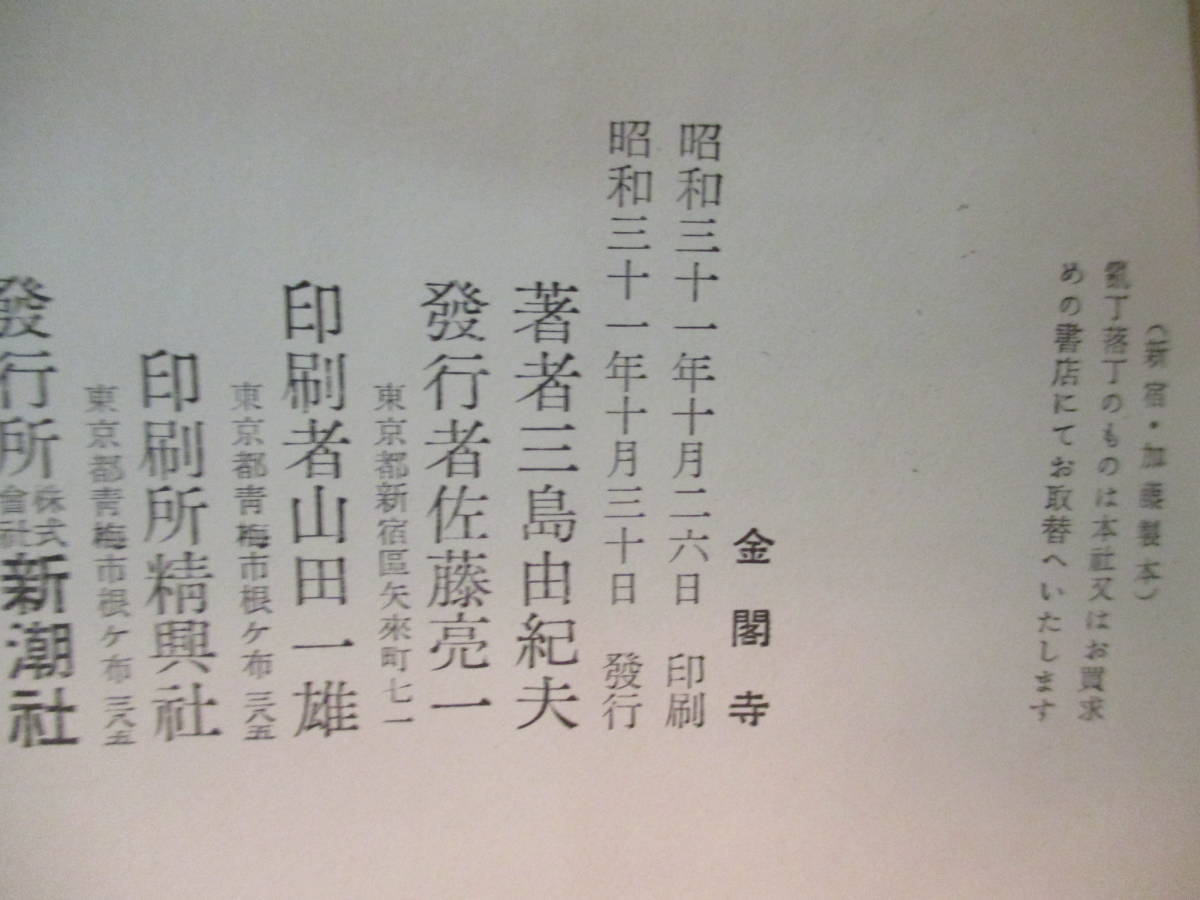 （新宿・加藤製本）
亂丁落丁のものは本社又はお買求
めの書店にてお取替へいたします
金閣寺
昭和三十一年十月二六日 印刷
昭和三十一年十月三十日 發行
著者三島由紀夫
發行者佐藤亮一
東京都新宿區矢來町七一
印刷者山田一雄
東京都青梅市根ケ布三八五
印刷所精興社
東京都青梅市根ケ布三八五
發行所株式會社新潮社